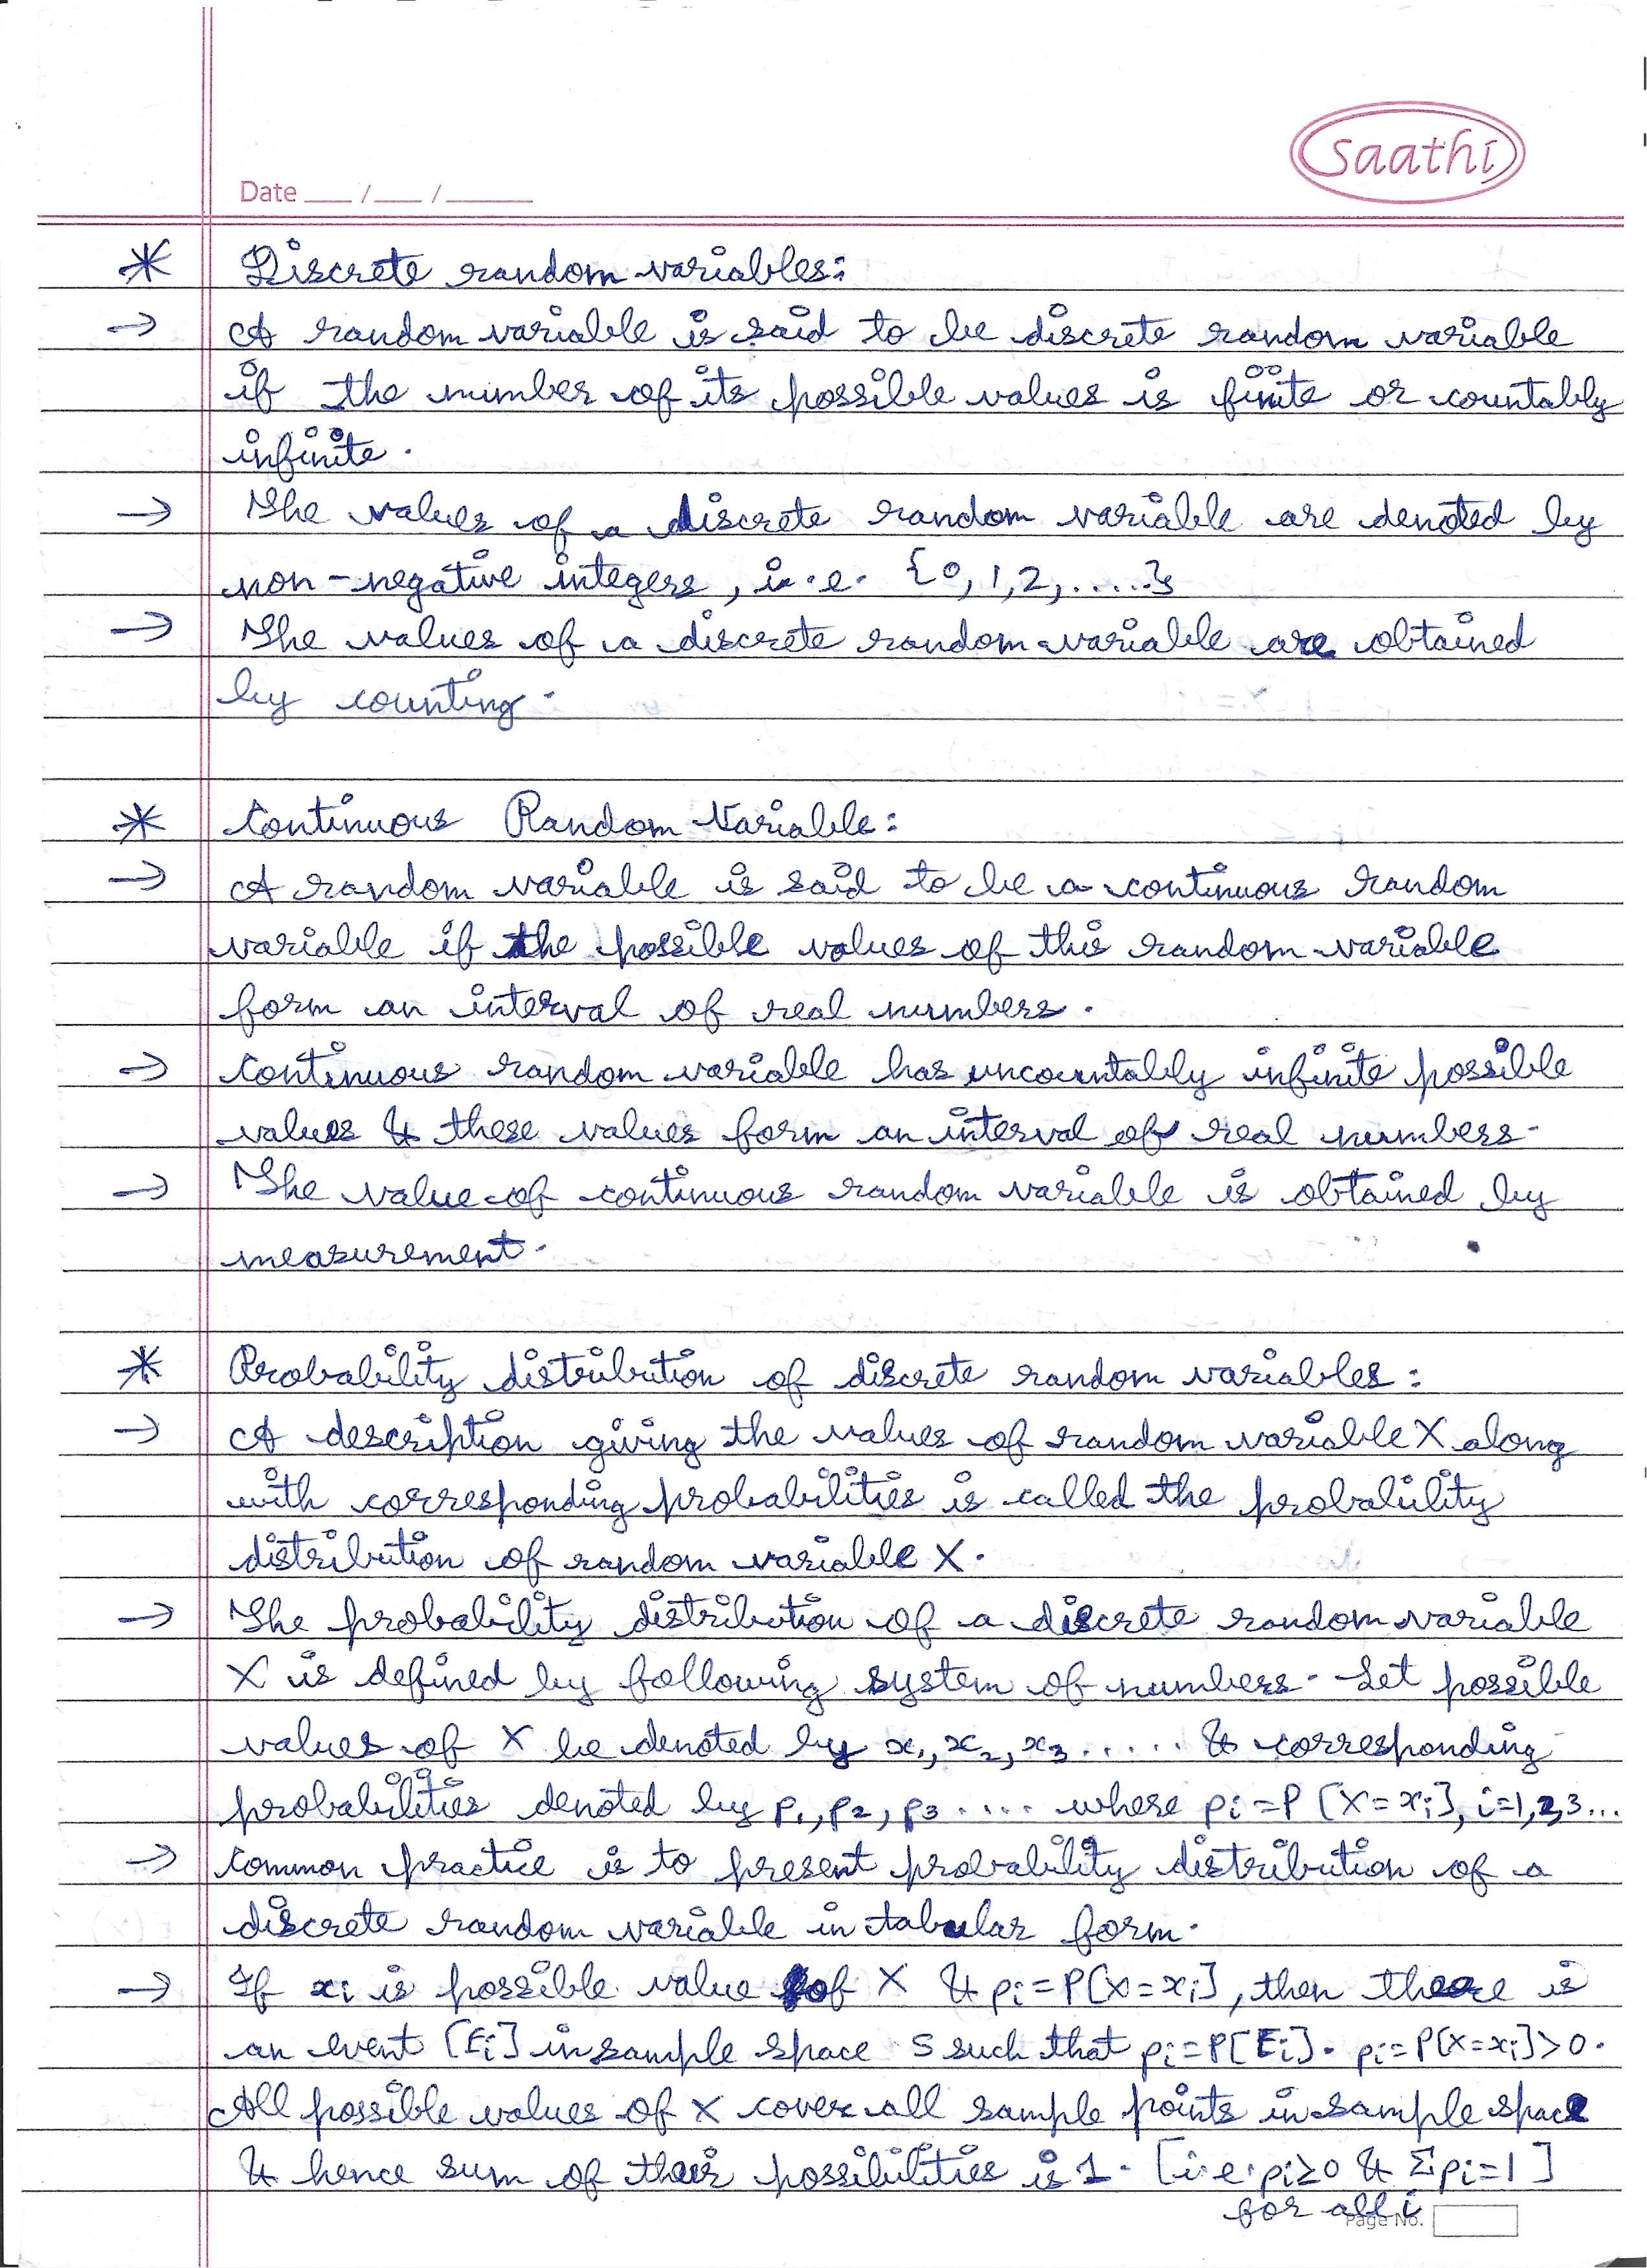 saathi
Date ___/___/_____
* Discrete random variables:
→ A random variable is said to be discrete random variable
if the number of its possible values is finite or countably
infinite.
→ The values of a discrete random variable are denoted by
non-negative integers, i.e. {0,1,2,.....}
→ The values of a discrete random variable are obtained
by counting.
* Continuous Random Variable:
→ A random variable is said to be a continuous random
variable if the possible values of this random variable
form an interval of real numbers.
→ Continuous random variable has uncountably infinite possible
values & these values form an interval of real numbers.
→ The value of continuous random variable is obtained by
measurement.
* Probability distribution of discrete random variables:
→ A description giving the values of random variable X along
with corresponding probabilities is called the probability
distribution of random variable X.
→ The probability distribution of a discrete random variable
X is defined by following system of numbers. Let possible
values of X be denoted by x₁, x₂, x₃ ..... & corresponding
probabilities denoted by p₁, p₂, p₃ .... where pᵢ = P[X=xᵢ], i=1,2,3...
→ Common practice is to present probability distribution of a
discrete random variable in tabular form.
→ If xᵢ is possible value of X & pᵢ = P[X=xᵢ], then there is
an event [Eᵢ] in sample space S such that pᵢ=P[Eᵢ]. pᵢ=P[X=xᵢ]>0.
All possible values of X cover all sample points in sample space
& hence sum of their possibilities is 1. [i.e. pᵢ≥0 & Σpᵢ=1]
for all i
Page No.